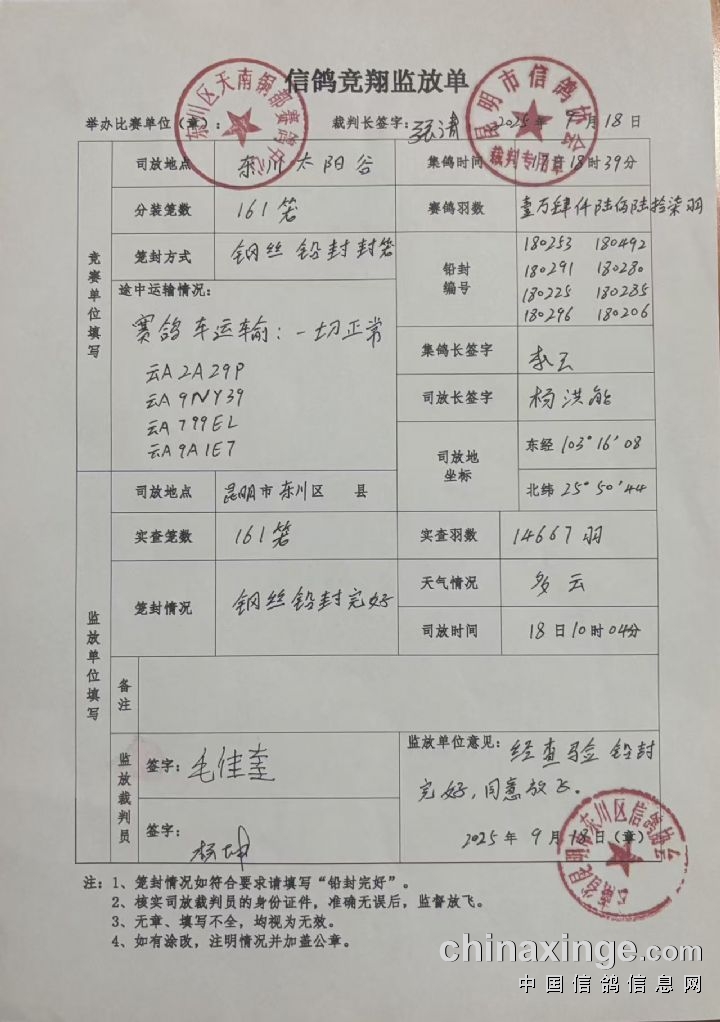 信鸽竞翔监放单
举办比赛单位（章）： 裁判长签字：张清 2025年 9月18日
东川区天南铜都赛鸽中心
昆明市信鸽协会
裁判专用章
竞赛单位填写
司放地点 东川太阳谷 集鸽时间 18时39分
分装笼数 161笼 赛鸽羽数 壹万肆仟陆佰陆拾柒羽
笼封方式 钢丝 铅封封笼 铅封编号 180253 180492
180291 180280
180225 180285
180296 180206
途中运输情况：
赛鸽车运输：一切正常
云A2A29P
云A9NY39
云A799EL
云A9A1E7
集鸽长签字
司放长签字 杨洪能
司放地坐标 东经 103°16′08
北纬 25°50′44
监放单位填写
司放地点 昆明市东川区 县
实查笼数 161笼 实查羽数 14667羽
笼封情况 钢丝铅封完好 天气情况 多云
司放时间 18日10时04分
备注
监放裁判员 签字：毛佳奎
签字：杨坤
监放单位意见：经查验铅封
完好，同意放飞。
2025年 9月18日（章）
注：1、笼封情况如符合要求请填写“铅封完好”。
2、核实司放裁判员的身份证件，准确无误后，监督放飞。
3、无章、填写不全，均视为无效。
4、如有涂改，注明情况并加盖公章。
chinaxinge.com
中国信鸽信息网